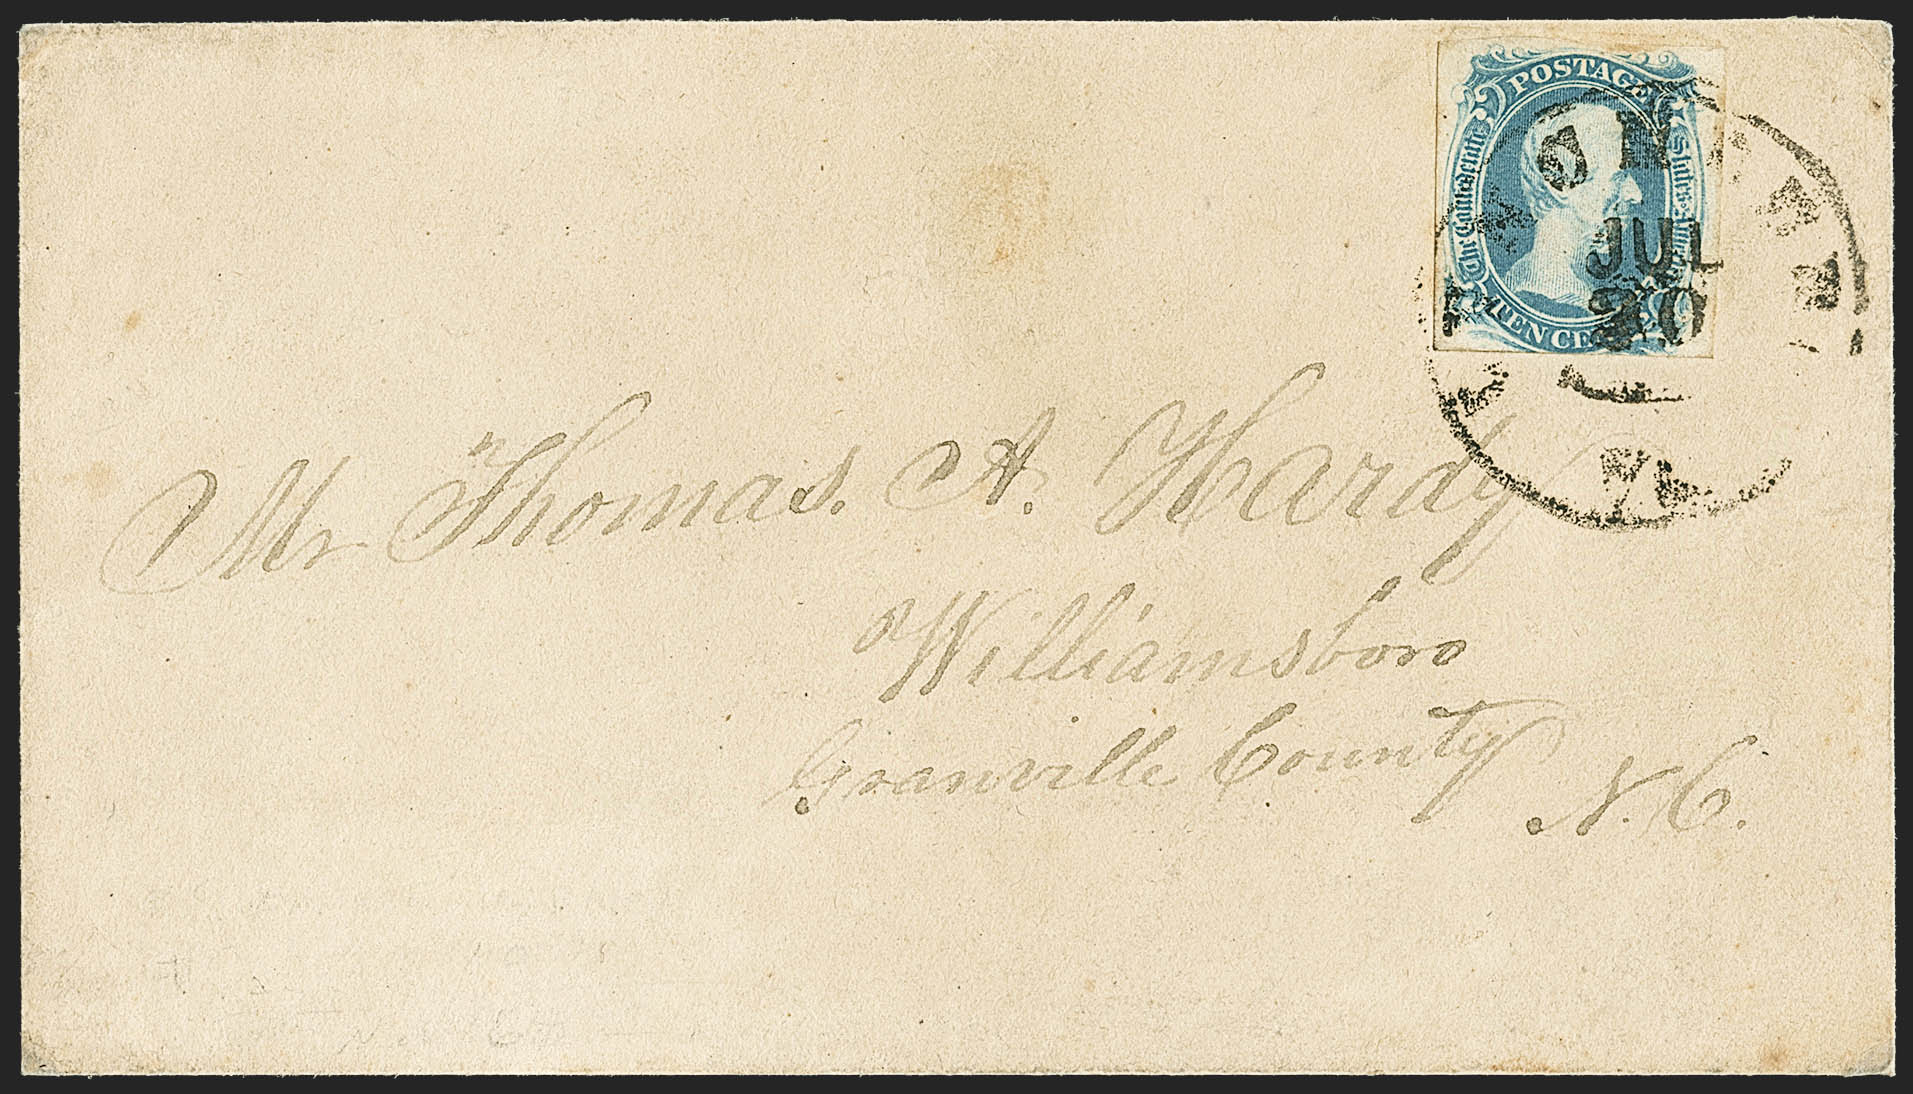 POSTAGE
The Confederate States
TEN CE
JUL
20
Mr Thomas. A. Hardy
Williamsboro
Granville County
N. C.